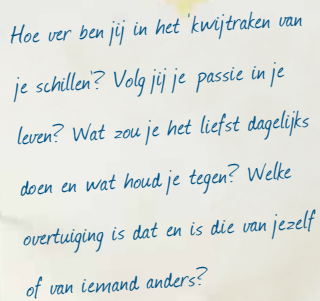 Hoe ver ben jij in het 'kwijtraken van
je schillen'? Volg jij je passie in je
leven? Wat zou je het liefst dagelijks
doen en wat houd je tegen? Welke
overtuiging is dat en is die van jezelf
of van iemand anders?